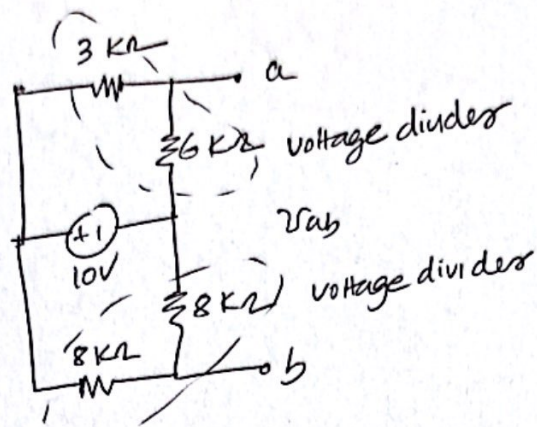 3 KΩ
a
6 KΩ voltage divider
+1
Vab
10V
8 KΩ voltage divider
8 KΩ
b